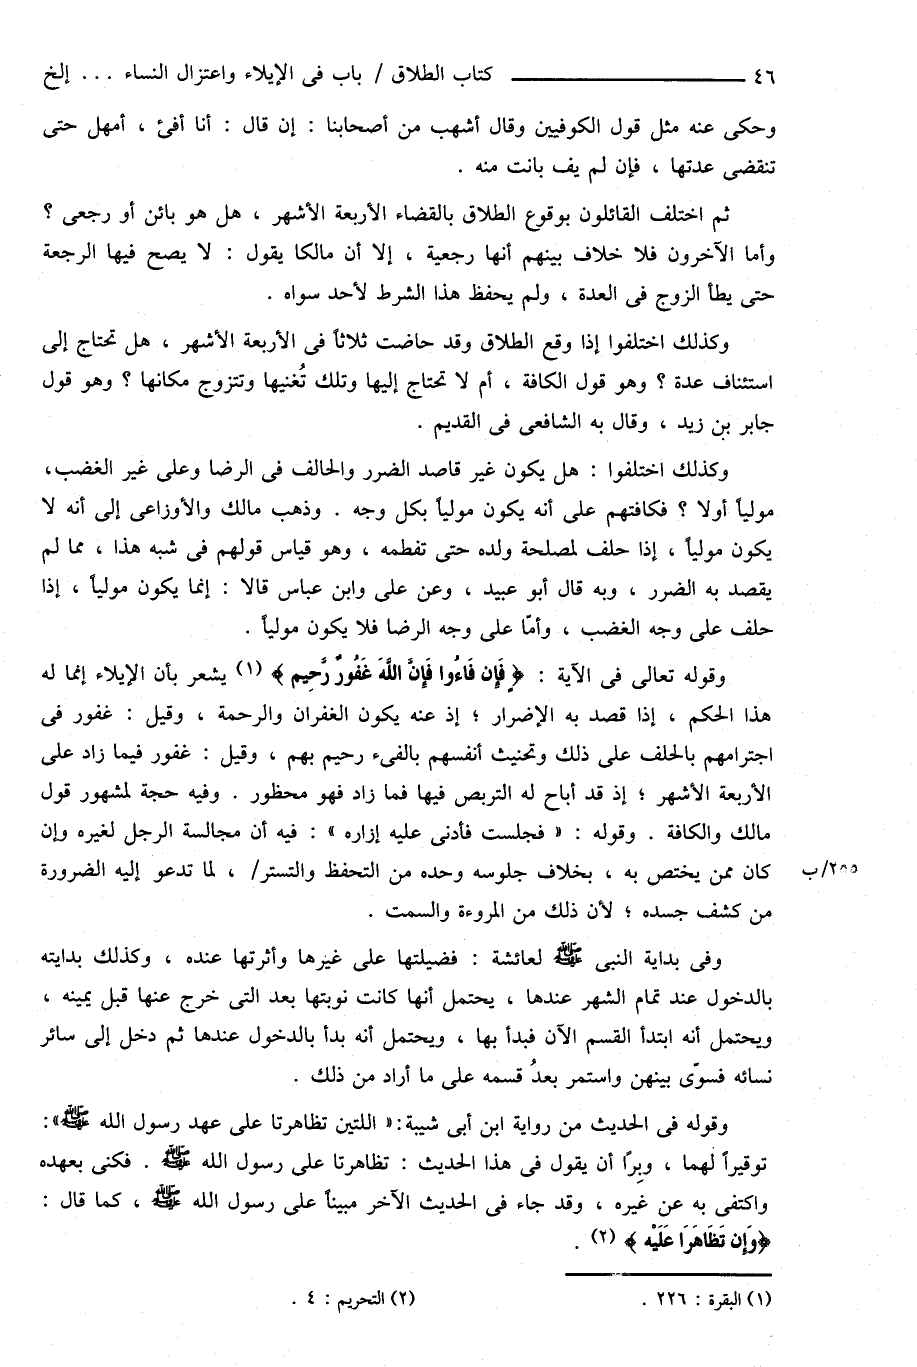 ٤٦ ــــــــــــــــ كتاب الطلاق / باب فى الإيلاء واعتزال النساء ... إلخ
وحكى عنه مثل قول الكوفيين وقال أشهب من أصحابنا : إن قال : أنا أفئ ، أمهل حتى
تنقضى عدتها ، فإن لم يف بانت منه .
ثم اختلف القائلون بوقوع الطلاق بالقضاء الأربعة الأشهر ، هل هو بائن أو رجعى ؟
وأما الآخرون فلا خلاف بينهم أنها رجعية ، إلا أن مالكا يقول : لا يصح فيها الرجعة
حتى يطأ الزوج فى العدة ، ولم يحفظ هذا الشرط لأحد سواه .
وكذلك اختلفوا إذا وقع الطلاق وقد حاضت ثلاثاً فى الأربعة الأشهر ، هل تحتاج إلى
استئناف عدة ؟ وهو قول الكافة ، أم لا تحتاج إليها وتلك تُغنيها وتتزوج مكانها ؟ وهو قول
جابر بن زيد ، وقال به الشافعى فى القديم .
وكذلك اختلفوا : هل يكون غير قاصد الضرر والحالف فى الرضا وعلى غير الغضب،
مولياً أولا ؟ فكافتهم على أنه يكون مولياً بكل وجه . وذهب مالك والأوزاعى إلى أنه لا
يكون مولياً ، إذا حلف لمصلحة ولده حتى تفطمه ، وهو قياس قولهم فى شبه هذا ، مما لم
يقصد به الضرر ، وبه قال أبو عبيد ، وعن على وابن عباس قالا : إنما يكون مولياً ، إذا
حلف على وجه الغضب ، وأمّا على وجه الرضا فلا يكون مولياً .
وقوله تعالى فى الآية : ﴿ فَإِن فَاءُوا فَإِنَّ اللَّهَ غَفُورٌ رَّحِيم ﴾ (١) يشعر بأن الإيلاء إنما له
هذا الحكم ، إذا قصد به الإضرار ؛ إذ عنه يكون الغفران والرحمة ، وقيل : غفور فى
اجترامهم بالحلف على ذلك وتحنيث أنفسهم بالفىء رحيم بهم ، وقيل : غفور فيما زاد على
الأربعة الأشهر ؛ إذ قد أباح له التربص فيها فما زاد فهو محظور . وفيه حجة لمشهور قول
مالك والكافة . وقوله : « فجلست فأدنى عليه إزاره » : فيه أن مجالسة الرجل لغيره وإن
كان ممن يختص به ، بخلاف جلوسه وحده من التحفظ والتستر/ ، لما تدعو إليه الضرورة ٢٥٥/ب
من كشف جسده ؛ لأن ذلك من المروءة والسمت .
وفى بداية النبى ﷺ لعائشة : فضيلتها على غيرها وأثرتها عنده ، وكذلك بدايته
بالدخول عند تمام الشهر عندها ، يحتمل أنها كانت نوبتها بعد التى خرج عنها قبل يمينه ،
ويحتمل أنه ابتدأ القسم الآن فبدأ بها ، ويحتمل أنه بدأ بالدخول عندها ثم دخل إلى سائر
نسائه فسوّى بينهن واستمر بعدُ قسمه على ما أراد من ذلك .
وقوله فى الحديث من رواية ابن أبى شيبة :« اللتين تظاهرتا على عهد رسول الله ﷺ»:
توقيراً لهما ، وبِرا أن يقول فى هذا الحديث : تظاهرتا على رسول الله ﷺ . فكنى بعهده
واكتفى به عن غيره ، وقد جاء فى الحديث الآخر مبيناً على رسول الله ﷺ ، كما قال :
﴿وَإِن تَظَاهَرَا عَلَيْه ﴾ (٢) .
(١) البقرة : ٢٢٦ . (٢) التحريم : ٤ .